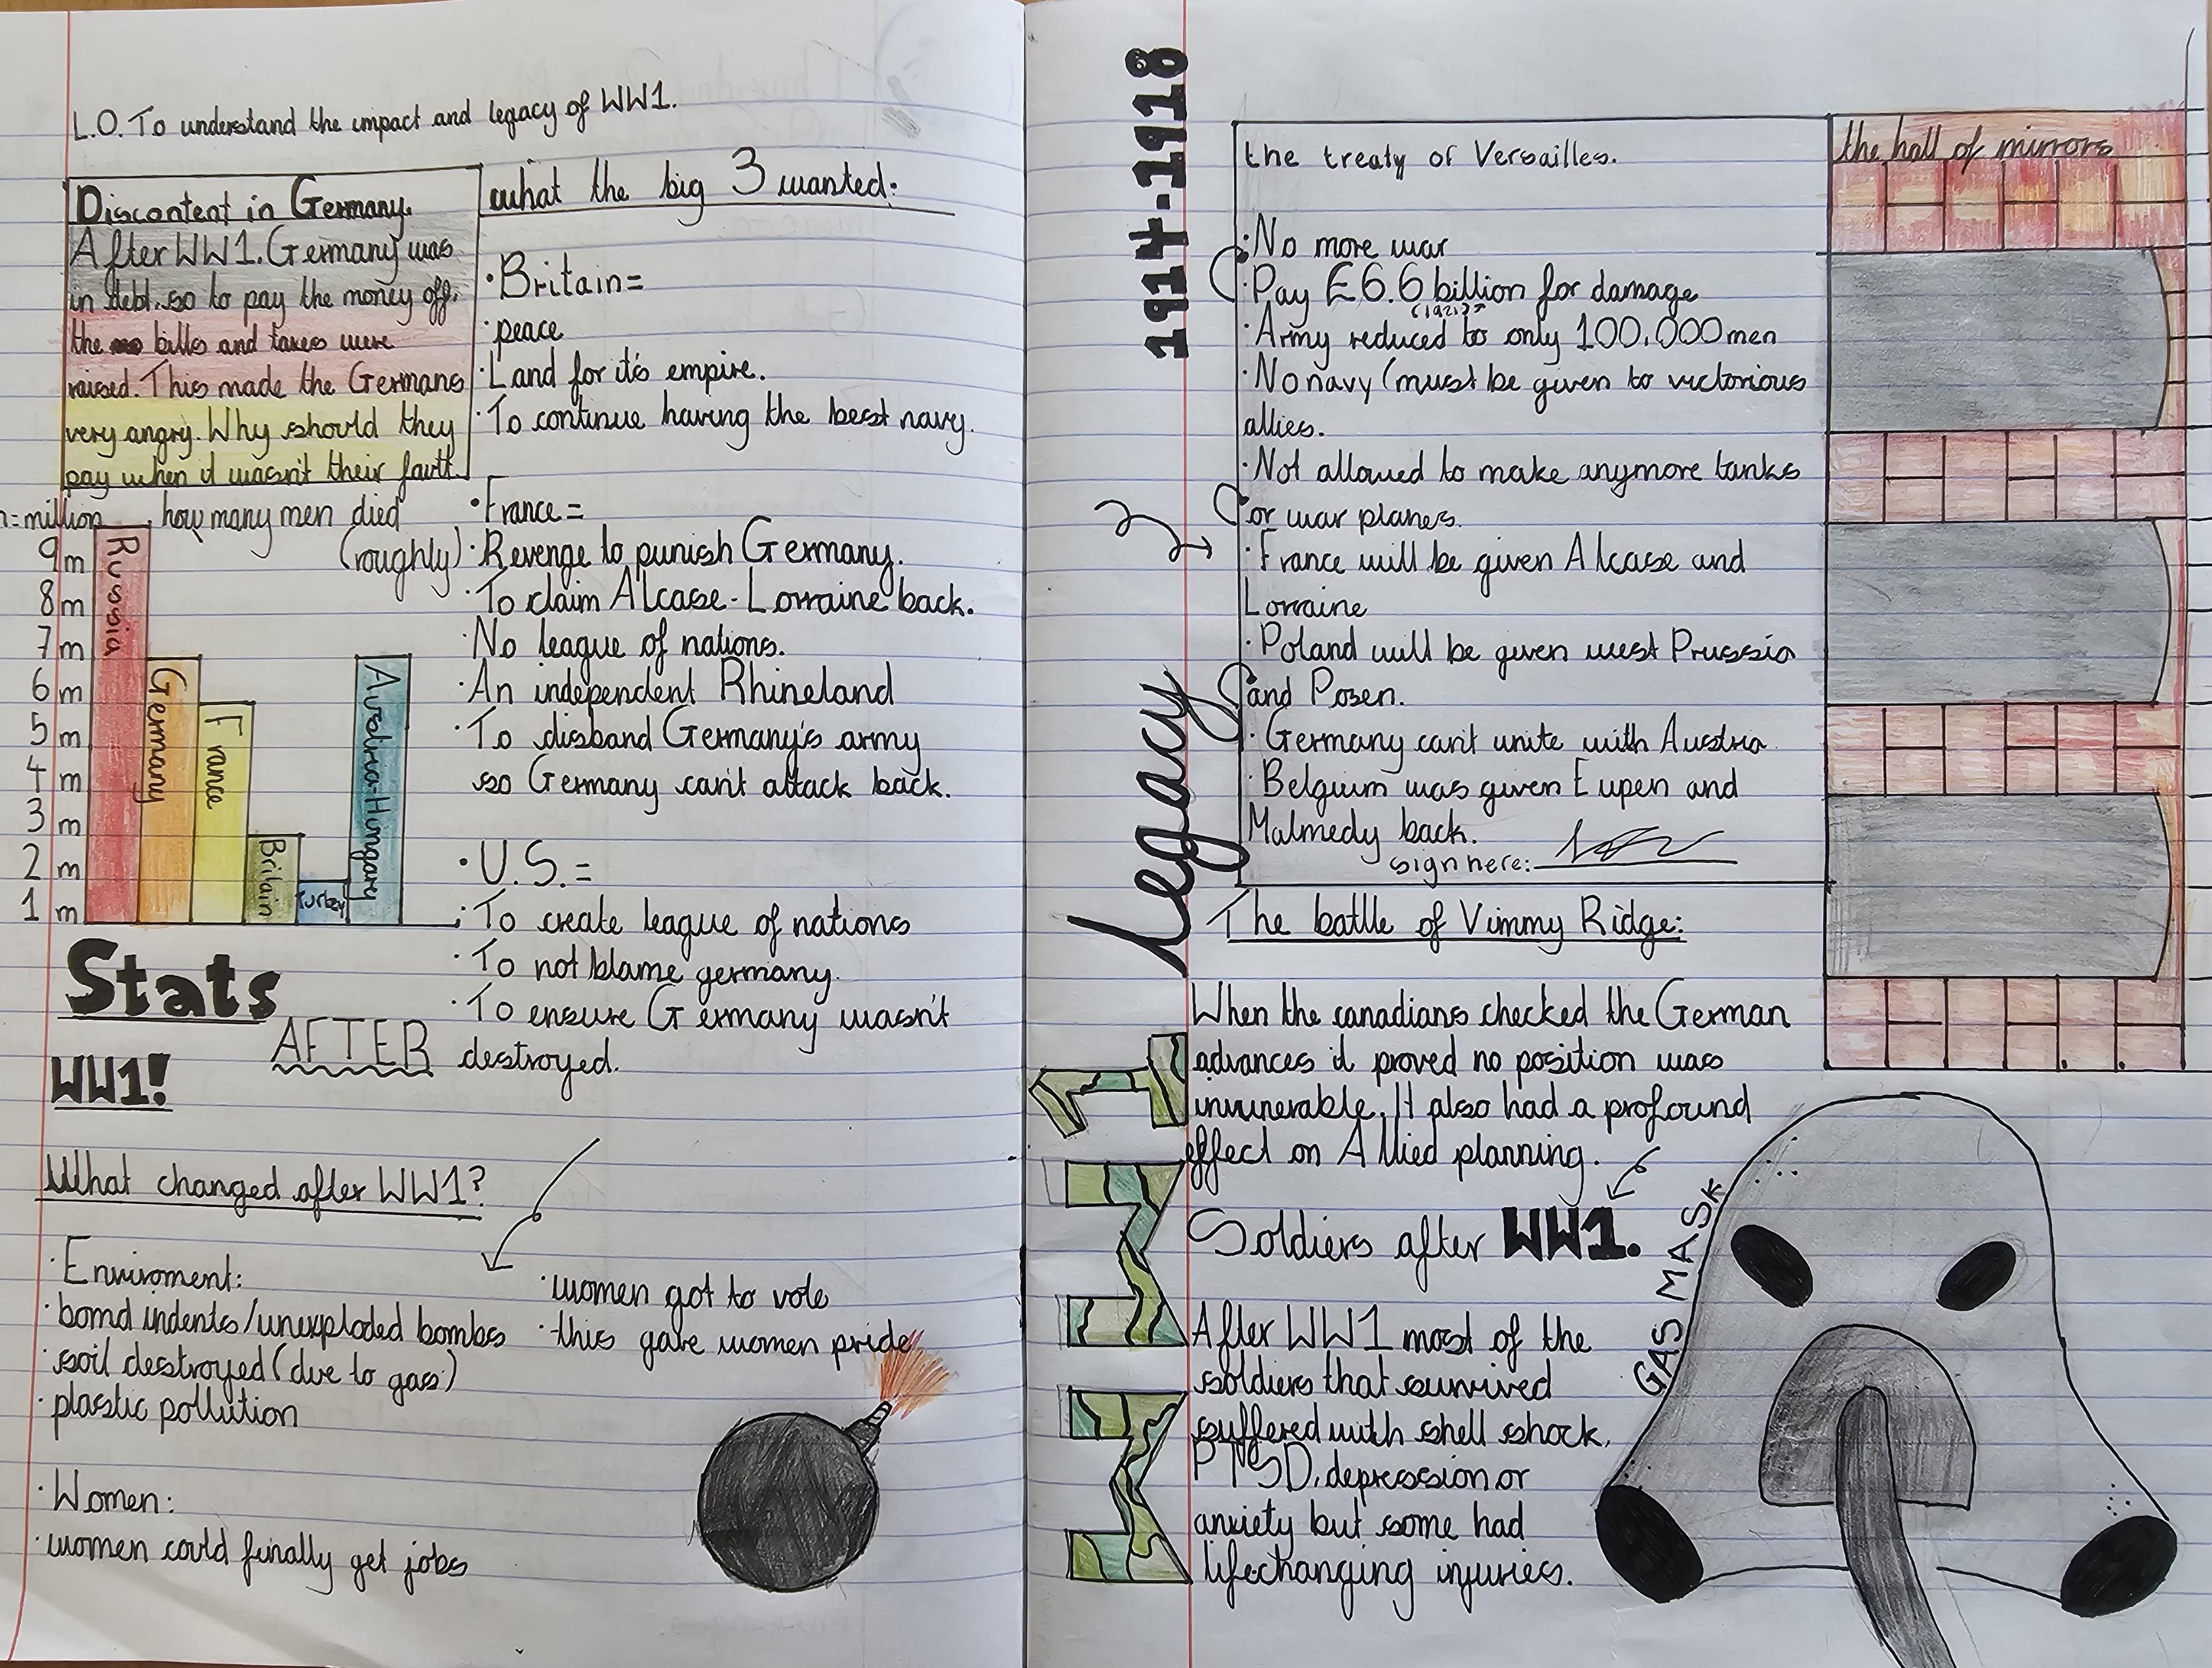 L.O. To understand the impact and legacy of WW1.
Discontent in Germany.
After WW1. Germany was
in debt. so to pay the money off.
the bills and taxes were
raised. This made the Germans
very angry. Why should they
pay when it wasn't their fault.
=million
how many men died
(roughly)
9m
8m
7m
6m
5m
4m
3m
2m
1m
Russia
Germany
France
Britain
Turkey
Austria-Hungary
Stats
AFTER
WW1!
what the big 3 wanted:
·Britain=
·peace
·Land for it's empire.
·To continue having the best navy.
·France=
·Revenge to punish Germany.
·To claim Alcase-Lorraine back.
·No league of nations.
·An independent Rhineland
·To disband Germany's army
so Germany can't attack back.
·U.S.=
·To create league of nations
·To not blame germany.
·To ensure Germany wasn't
destroyed.
What changed after WW1?
·Enviroment:
·bomd indents/unexploded bombs
·soil destroyed (due to gas)
·plastic pollution
·Women:
·women could finally get jobs
·women got to vote
·this gave women pride
1914-1918
Legacy
WW1
the treaty of Versailles.
·No more war
·Pay £6.6 billion for damage
(1921)
·Army reduced to only 100,000men
·No navy (must be given to victorious
allies.
·Not allowed to make anymore tanks
or war planes.
·France will be given Alcase and
Lorraine
·Poland will be given west Prussia
and Posen.
·Germany can't unite with Austria
·Belgium was given Eupen and
Malmedy back.
sign here:
the hall of mirrors
The battle of Vimmy Ridge:
When the canadians checked the German
advances it proved no position was
invunerable. It also had a profound
effect on Allied planning.
Soldiers after WW1.
After WW1 most of the
soldiers that survived
suffered with shell shock,
PTSD, depression or
anxiety but some had
lifechanging injuries.
GAS MASK